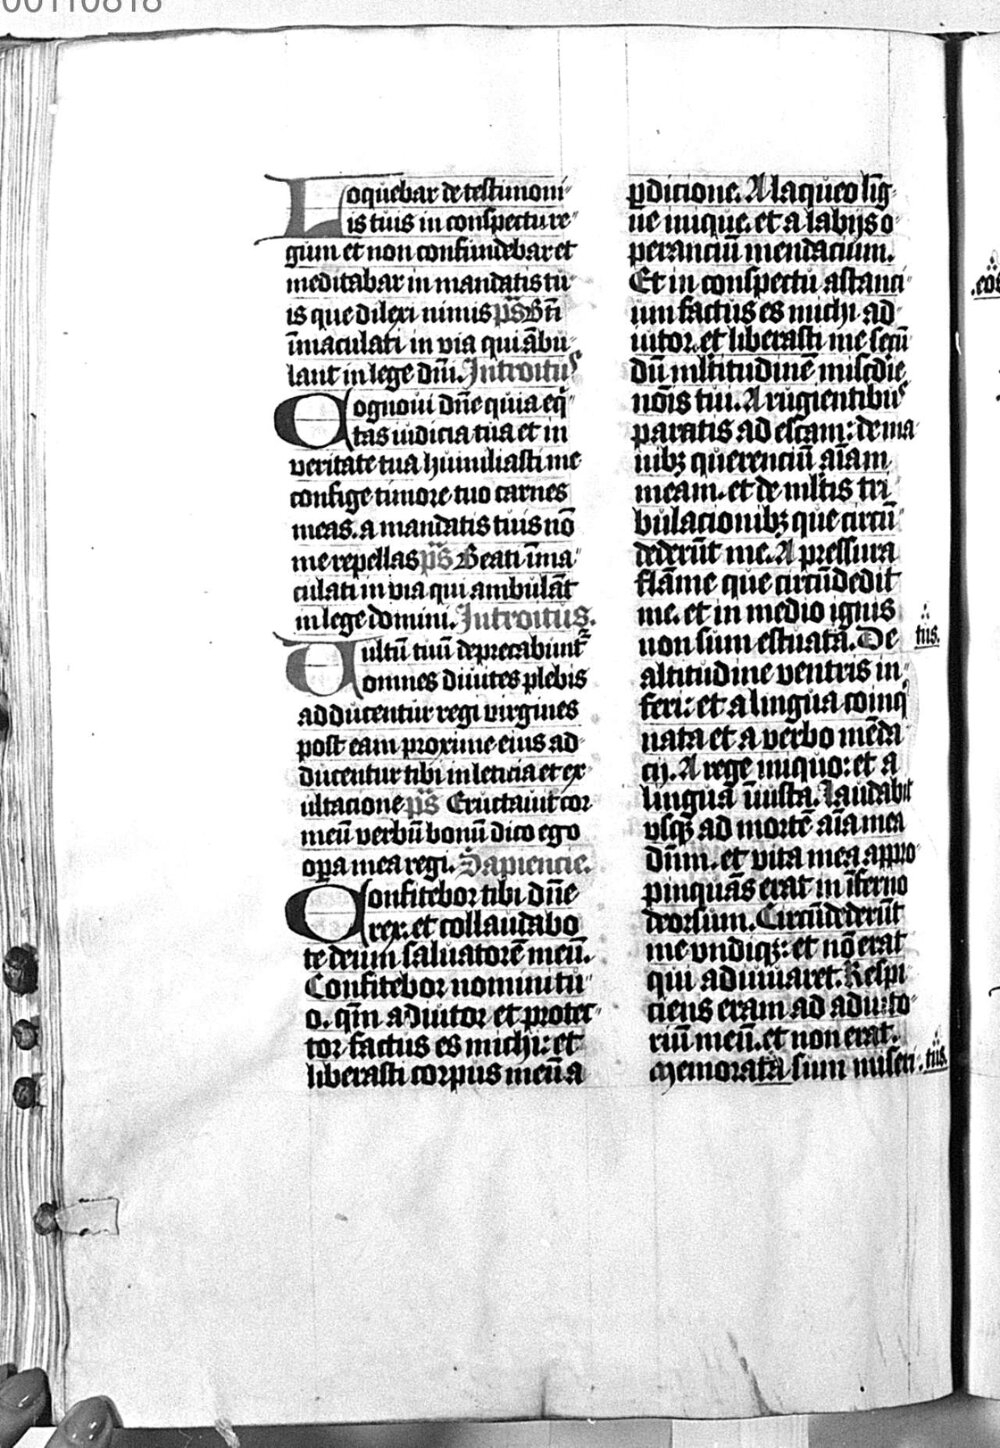 00110818
Loquebar de testimoni
is tuis in conspectu re
gum et non confundebar et
meditabar in mandatis tu
is que dilexi nimis ps̄ Bt̄i
īmaculati in via qui ābu
lant in lege dn̄i. Introitus
Cognoui dn̄e quia eq̄
tas iudicia tua et in
veritate tua humiliasti me
confige timore tuo carnes
meas. a mandatis tuis nō
me repellas ps̄ Beati īma
culati in via qui ambulāt
in lege domini. Introitus.
Vultū tuū deprecabunt᷑
omnes diuites plebis
adducentur regi virgines
post eam proxime eius ad
ducentur tibi in leticia et ex
ultacione ps̄ Eructauit cor
meū verbū bonū dico ego
oꝑa mea regi. Sapiencie.
Confitebor tibi dn̄e
rex. et collaudabo
te deum saluatorē meū.
Confitebor nomini tu
o. qm̄ adiutor et protec
tor factus es michi: et
liberasti corpus meū a
ꝑdicione. A laqueo līg
ue inique. et a labijs o
peranciū mendacium.
Et in conspectu astanci
um factus es michi ad
iutor. et liberasti me secū
dū ml̄titudinē misc̄die
nōis tui. A rugientibus
paratis ad escam: de ma
nibꝫ querenciū aīam
meam. et de ml̄tis tri
bulacionibꝫ que circū
dederūt me. A pressura
flāme que circūdedit
me. et in medio ignis
non sum estuata. De
tus.
altitudine ventris in
feri: et a lingua coinq
nata et a verbo mēda
cij. A rege iniquo: et a
lingua īiusta. Laudabit
vsqꝫ ad mortē aīa mea
dn̄m. et vita mea appro
pinquās erat in īferno
deorsum. Circūdederūt
me vndiqꝫ: et nō erat
qui adiuuaret. Respi
ciens eram ad adiuto
riū meū. et non erat.
Memorata sum miseri
tus.